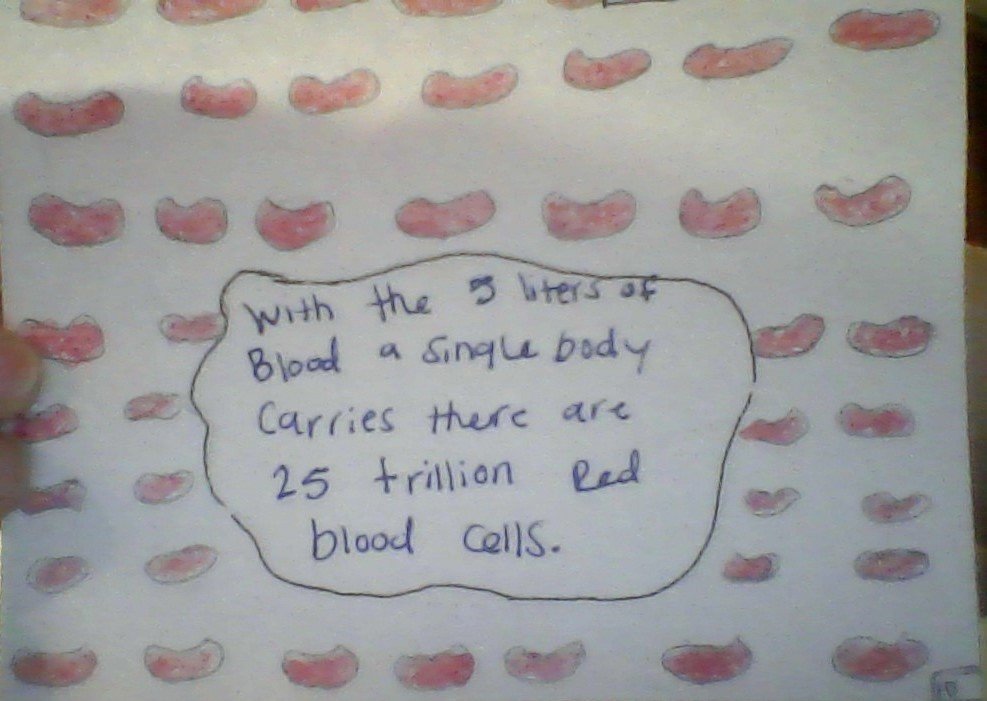 With the 5 liters of
Blood a single body
Carries there are
25 trillion Red
blood cells.